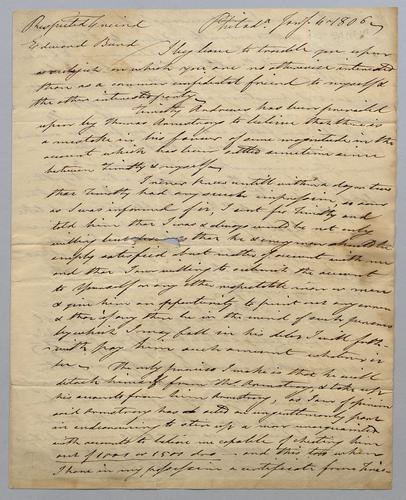 Respected Friend Philada Jany 4 1806
Edward Burd
I beg leave to trouble you upon
a subject in which you are no otherwise interested
than as a common impartial friend to myself &
the other interested party
Timothy Andrews has been prevailed
upon by Thomas Armstrong to believe that there is
a mistake in his favour of some magnitude in the
account which has been settled sometime since
between Timothy & myself
I never knew untill within a day or two
that Timothy had any such impression, as soon
as I was informed of it, I sent for Timothy and
told him that I was & always would be not only
willing but that he & every man should be
amply satisfied that matters of account with me
and that I was willing to submit the account
to Yourself or any other respectable man or men
& give him an opportunity to point out any errors
& that if any there be in the mind of such persons
by which I may fall in his debt I will forth-
with pay him such amount whatever it
be The only promise I make is that he will
detach himself from Thos Armstrong & take up
his accounts from him Armstrong, as I am of opinion
said Armstrong has acted an ungentlemany part
in endeavouring to stir up a man unacquainted
with accounts to believe me capable of cheating him
out of 1000 or 1500 dols and this too when
I have in my possession a certificate from Timo